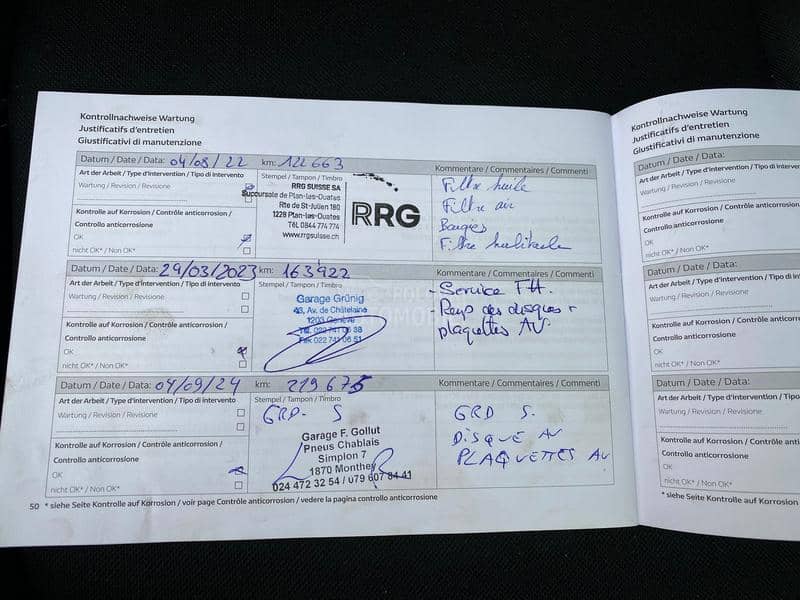 Kontrollnachweise Wartung
Justificatifs d'entretien
Giustificativi di manutenzione
Datum / Date / Data: 04/08/22 km: 122663
Art der Arbeit / Type d'intervention / Tipo di intervento
Stempel / Tampon / Timbro
Kommentare / Commentaires / Commenti
Wartung / Revision / Revisione
RRG SUISSE SA
Succursale de Plan-les-Ouates
Rte de St-Julien 180
1228 Plan-les-Ouates
Tél. 0844 774 774
www.rrgsuisse.ch
RRG
Filtre huile
Filtre air
Bougies
Filtre habitacle
Kontrolle auf Korrosion / Contrôle anticorrosion /
Controllo anticorrosione
OK
nicht OK* / Non OK*
Datum / Date / Data: 29/03/2023 km: 163'922
Art der Arbeit / Type d'intervention / Tipo di intervento
Stempel / Tampon / Timbro
Kommentare / Commentaires / Commenti
Wartung / Revision / Revisione
Garage Grünig
43, Av. de Châtelaine
1203 Genève
Fax 022 741 06 51
- Service
des disques +
plaquettes AV
Kontrolle auf Korrosion / Contrôle anticorrosion /
Controllo anticorrosione
OK
nicht OK* / Non OK*
Datum / Date / Data: 04/09/24 km: 219675
Art der Arbeit / Type d'intervention / Tipo di intervento
Stempel / Tampon / Timbro
Kommentare / Commentaires / Commenti
Wartung / Revision / Revisione
GRD. S
Garage F. Gollut
Pneus Chablais
Simplon 7
1870 Monthey
024 472 32 54 / 079 607 84 41
GRD S.
DISQUE AV
PLAQUETTES AV
Kontrolle auf Korrosion / Contrôle anticorrosion /
Controllo anticorrosione
OK
nicht OK* / Non OK*
50 * siehe Seite Kontrolle auf Korrosion / voir page Contrôle anticorrosion / vedere la pagina controllo anticorrosione
Kontrollnachweise Wartung
Justificatifs d'entretien
Giustificativi di manutenzione
Datum / Date / Data:
Art der Arbeit / Type d'intervention / Tipo di interven
Wartung / Revision / Revisione
Kontrolle auf Korrosion / Contrôle anticorrosion
Controllo anticorrosione
OK
nicht OK* / Non OK*
Datum / Date / Data:
Art der Arbeit / Type d'intervention / Tipo di
Wartung / Revision / Revisione
Kontrolle auf Korrosion / Contrôle anticorros
Controllo anticorrosione
OK
nicht OK* / Non OK*
Datum / Date / Data:
Art der Arbeit / Type d'intervention / Tipo
Wartung / Revision / Revisione
Kontrolle auf Korrosion / Contrôle anti
Controllo anticorrosione
OK
nicht OK* / Non OK*
* siehe Seite Kontrolle auf Korrosion